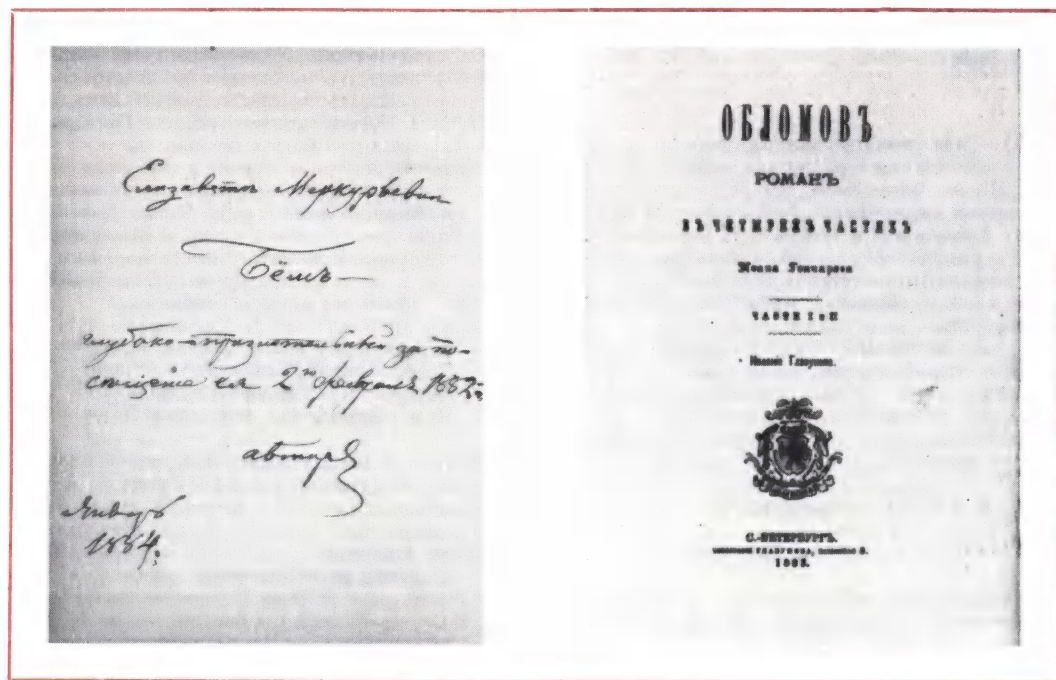 Елизаветѣ Меркурьевнѣ
Бёмъ—
глубоко-признательный за по-
сѣщеніе ея 2го февраля 1882 г.
авторъ
Январь
1884.
ОБЛОМОВЪ
РОМАНЪ
ВЪ ЧЕТЫРЕХЪ ЧАСТЯХЪ
Ивана Гончарова
ЧАСТИ I и II
Изданіе Глазунова.
С.-ПЕТЕРБУРГЪ.